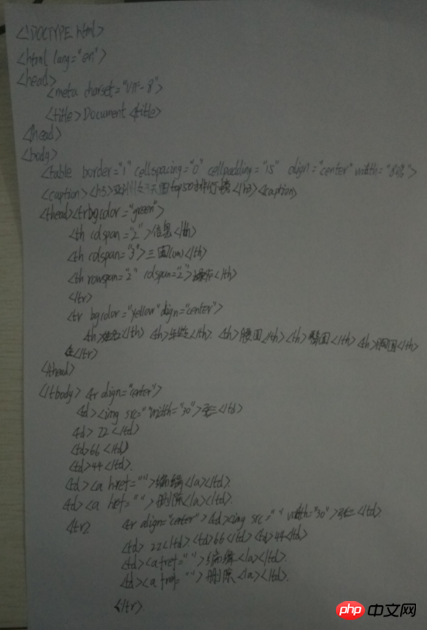 <!DOCTYPE html>
<html lang="en">
<head>
<meta charset="UTF-8">
<title>Document<title>
</head>
<body>
<table border="1" cellspacing="0" cellpadding="15" align="center" width="
<caption><h3> top50 <h3><caption>
<thead><tr bgcolor="green">
<th colspan="2">信息</th>
<th colspan="3">三围(cm)</th>
<th rowspan="2" colspan="2"></th>
</tr>
<tr bgcolor="yellow" align="center">
<th>姓名</th> <th>年龄</th> <th>胸围<th> <th>腰围</th> <th></th>
</tr>
</thead>
<tbody> <tr align="center">
<td><img src="" width="50"></td>
<td> 22</td>
<td>66</td>
<td>44</td>
<td><a href="">编辑</a></td>
<td><a href="">删除</a></td>
</tr> <tr align="center"> <td><img src="" width="50"></td>
<td> 22</td> <td>66</td> <td>44</td>
<td><a href="">编辑</a></td>
<td><a href="">删除</a></td>
</tr>
php中文网